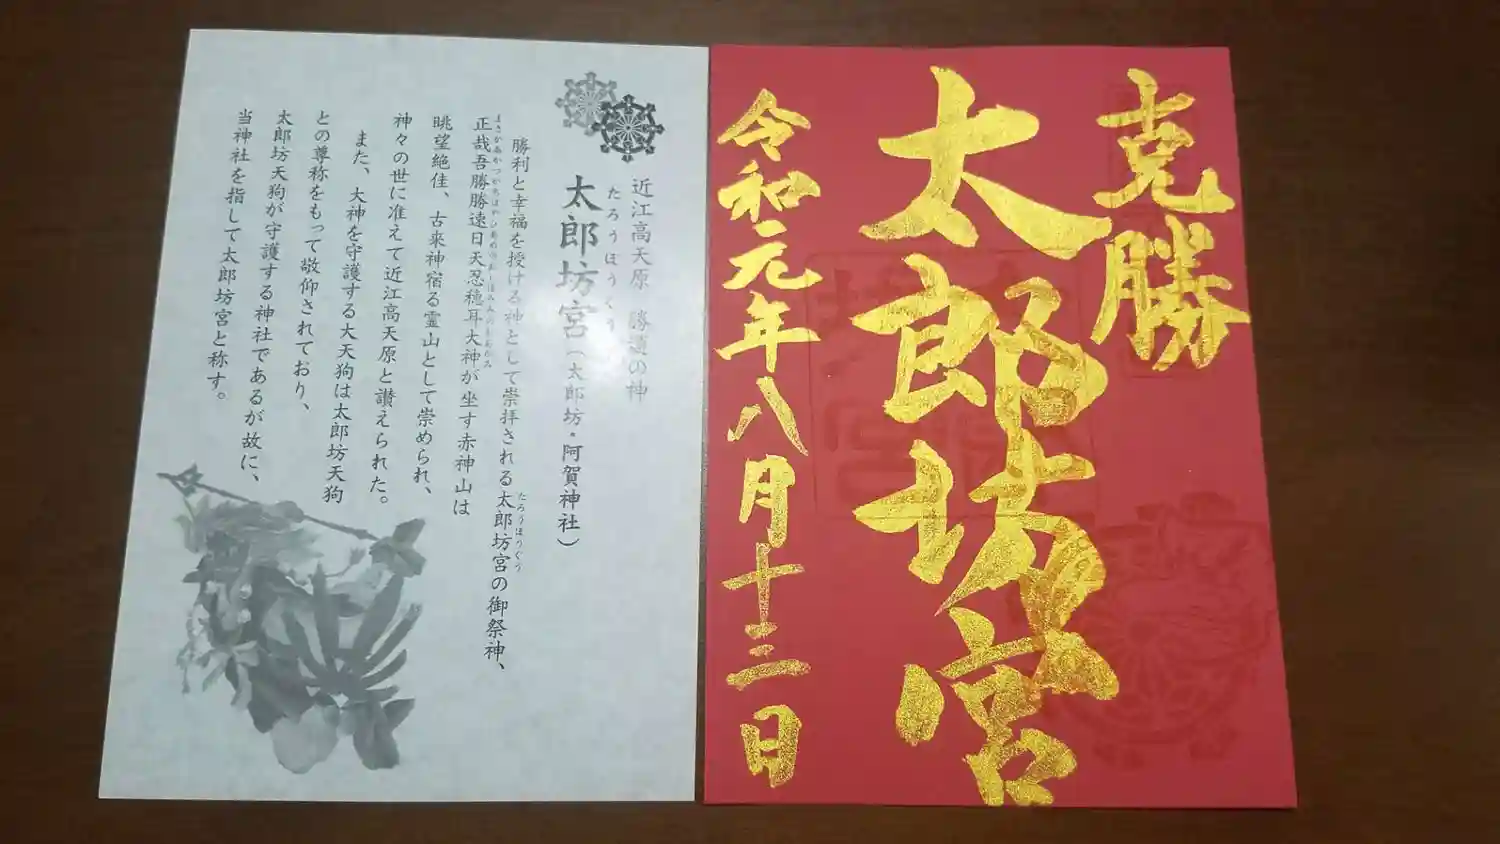 近江高天原 勝運の神
たろうぼうぐう
太郎坊宮(太郎坊・阿賀神社)
勝利と幸福を授ける神として崇拝される太郎坊宮の御祭神、
たろうぼうぐう
正哉吾勝勝速日天忍穂耳大神が坐す赤神山は
まさかあかつかちはやひあめのおしほみみのおおかみ
眺望絶佳、古来神宿る霊山として崇められ、
神々の世に准えて近江高天原と讃えられた。
また、大神を守護する大天狗は太郎坊天狗
との尊称をもって敬仰されており、
太郎坊天狗が守護する神社であるが故に、
当神社を指して太郎坊宮と称す。
克勝
太郎坊宮
令和元年八月十三日